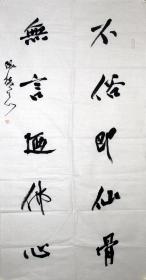 不俗即仙骨
無言迺佛心